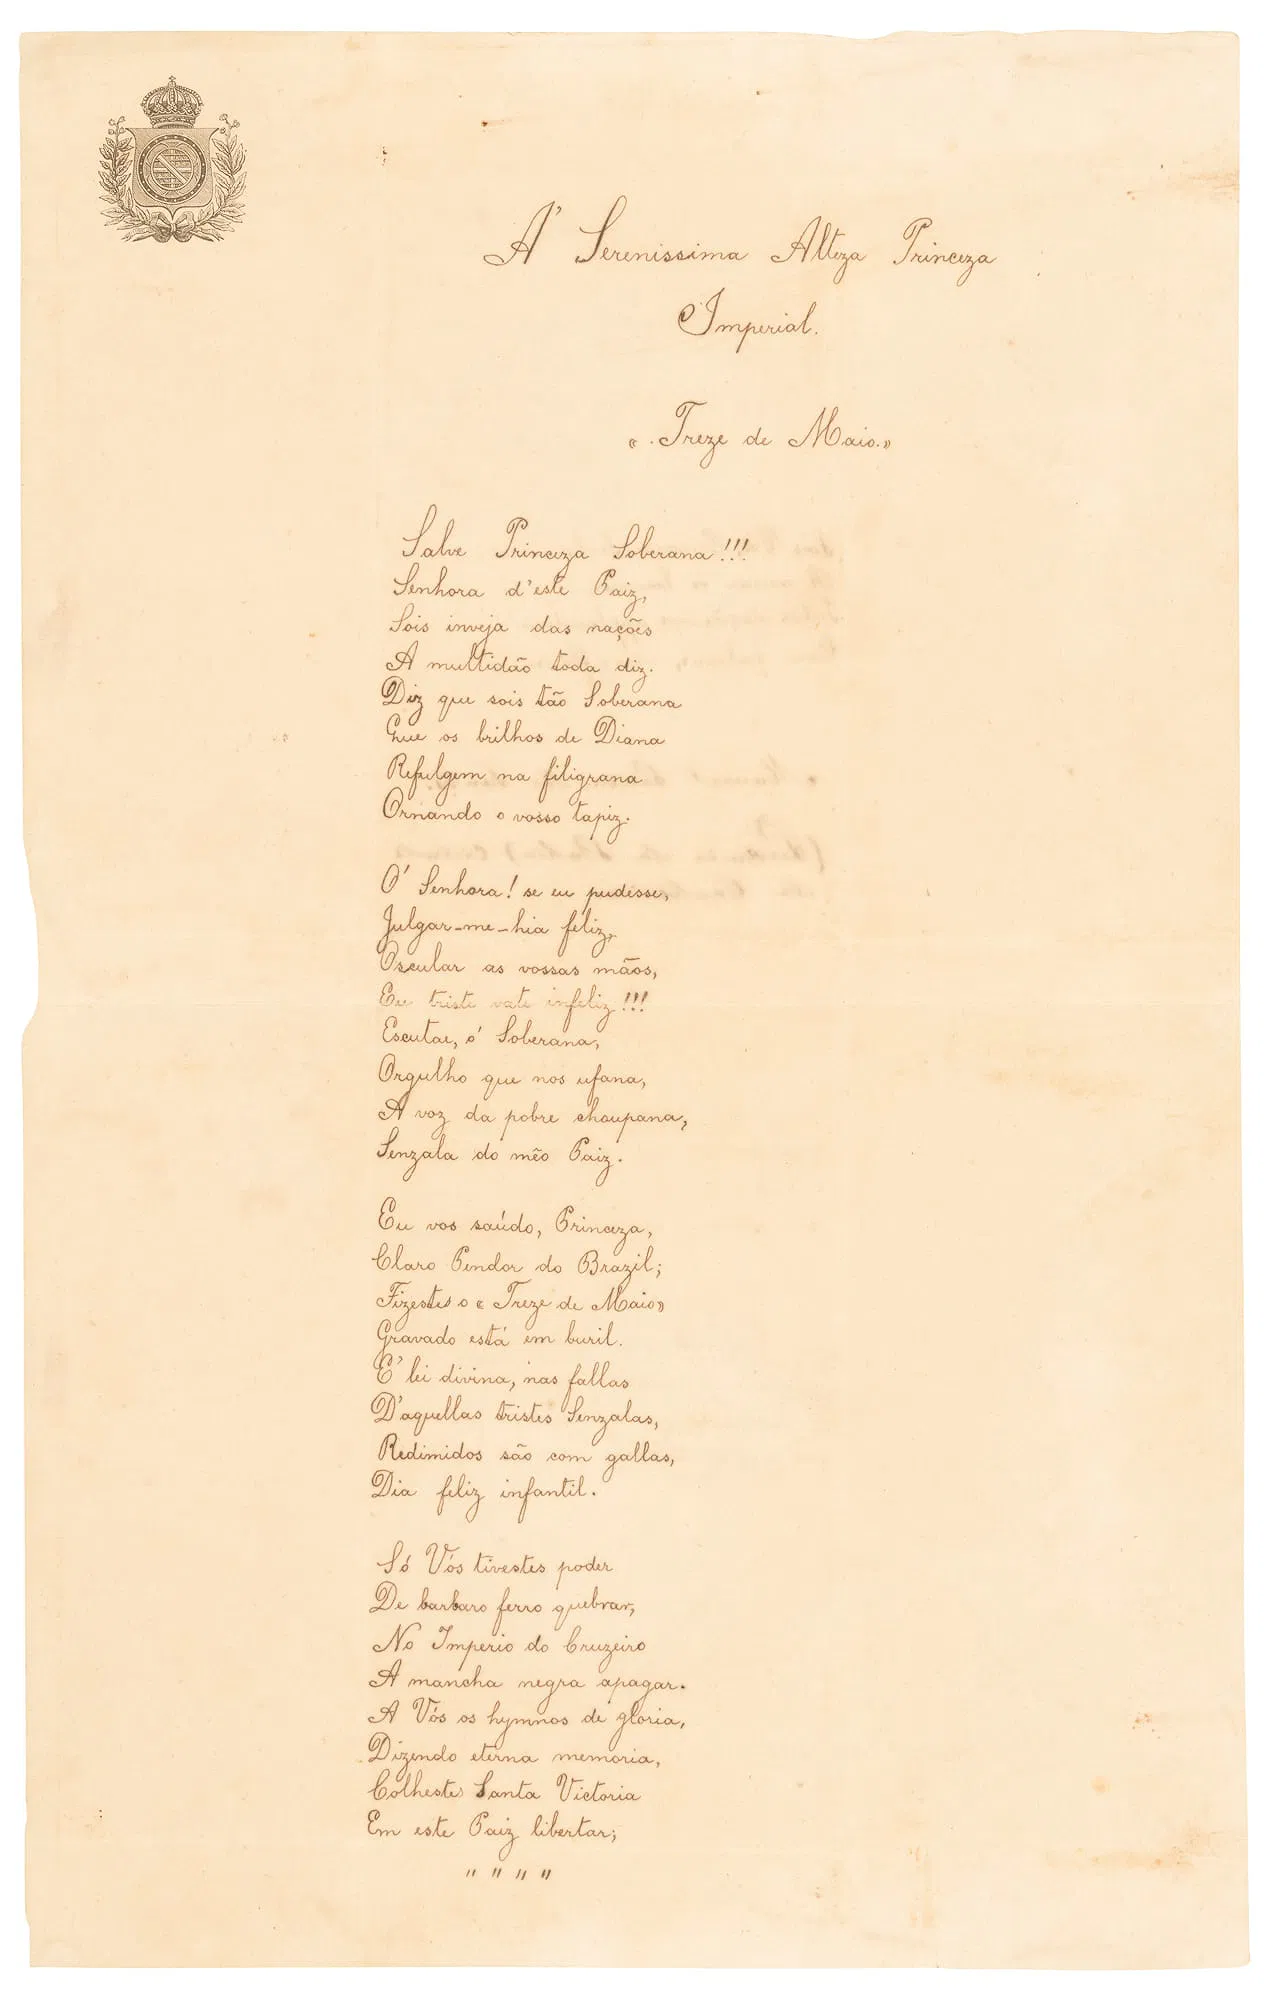 A' Serenissima Alteza Princeza
Imperial.
«. Treze de Maio.»
Salve Princeza Soberana!!!
Senhora d'este Paiz,
Sois inveja das nações
A multidão toda diz.
Diz que sois tão Soberana
Que os brilhos de Diana
Refulgem na filigrana
Ornando o vosso tapiz.
O' Senhora! se eu pudesse,
Julgar-me-hia feliz,
Oscular as vossas mãos,
Eu triste vate infeliz!!!
Escutae, o' Soberana,
Orgulho que nos ufana,
A voz da pobre choupana,
Senzala do mêo Paiz.
Eu vos saúdo, Princeza,
Claro Pendor do Brazil;
Fizestes o « Treze de Maio»
Gravado está em buril.
E' lei divina, nas fallas
D'aquellas tristes Senzalas,
Redimidos são com gallas,
Dia feliz infantil.
Só Vós tivestes poder
De barbaro ferro quebrar,
No Imperio do Cruzeiro
A mancha negra apagar.
A Vós os hymnos de gloria,
Dizendo eterna memoria,
Colhestes Santa Victoria
Em este Paiz libertar;
" " " "